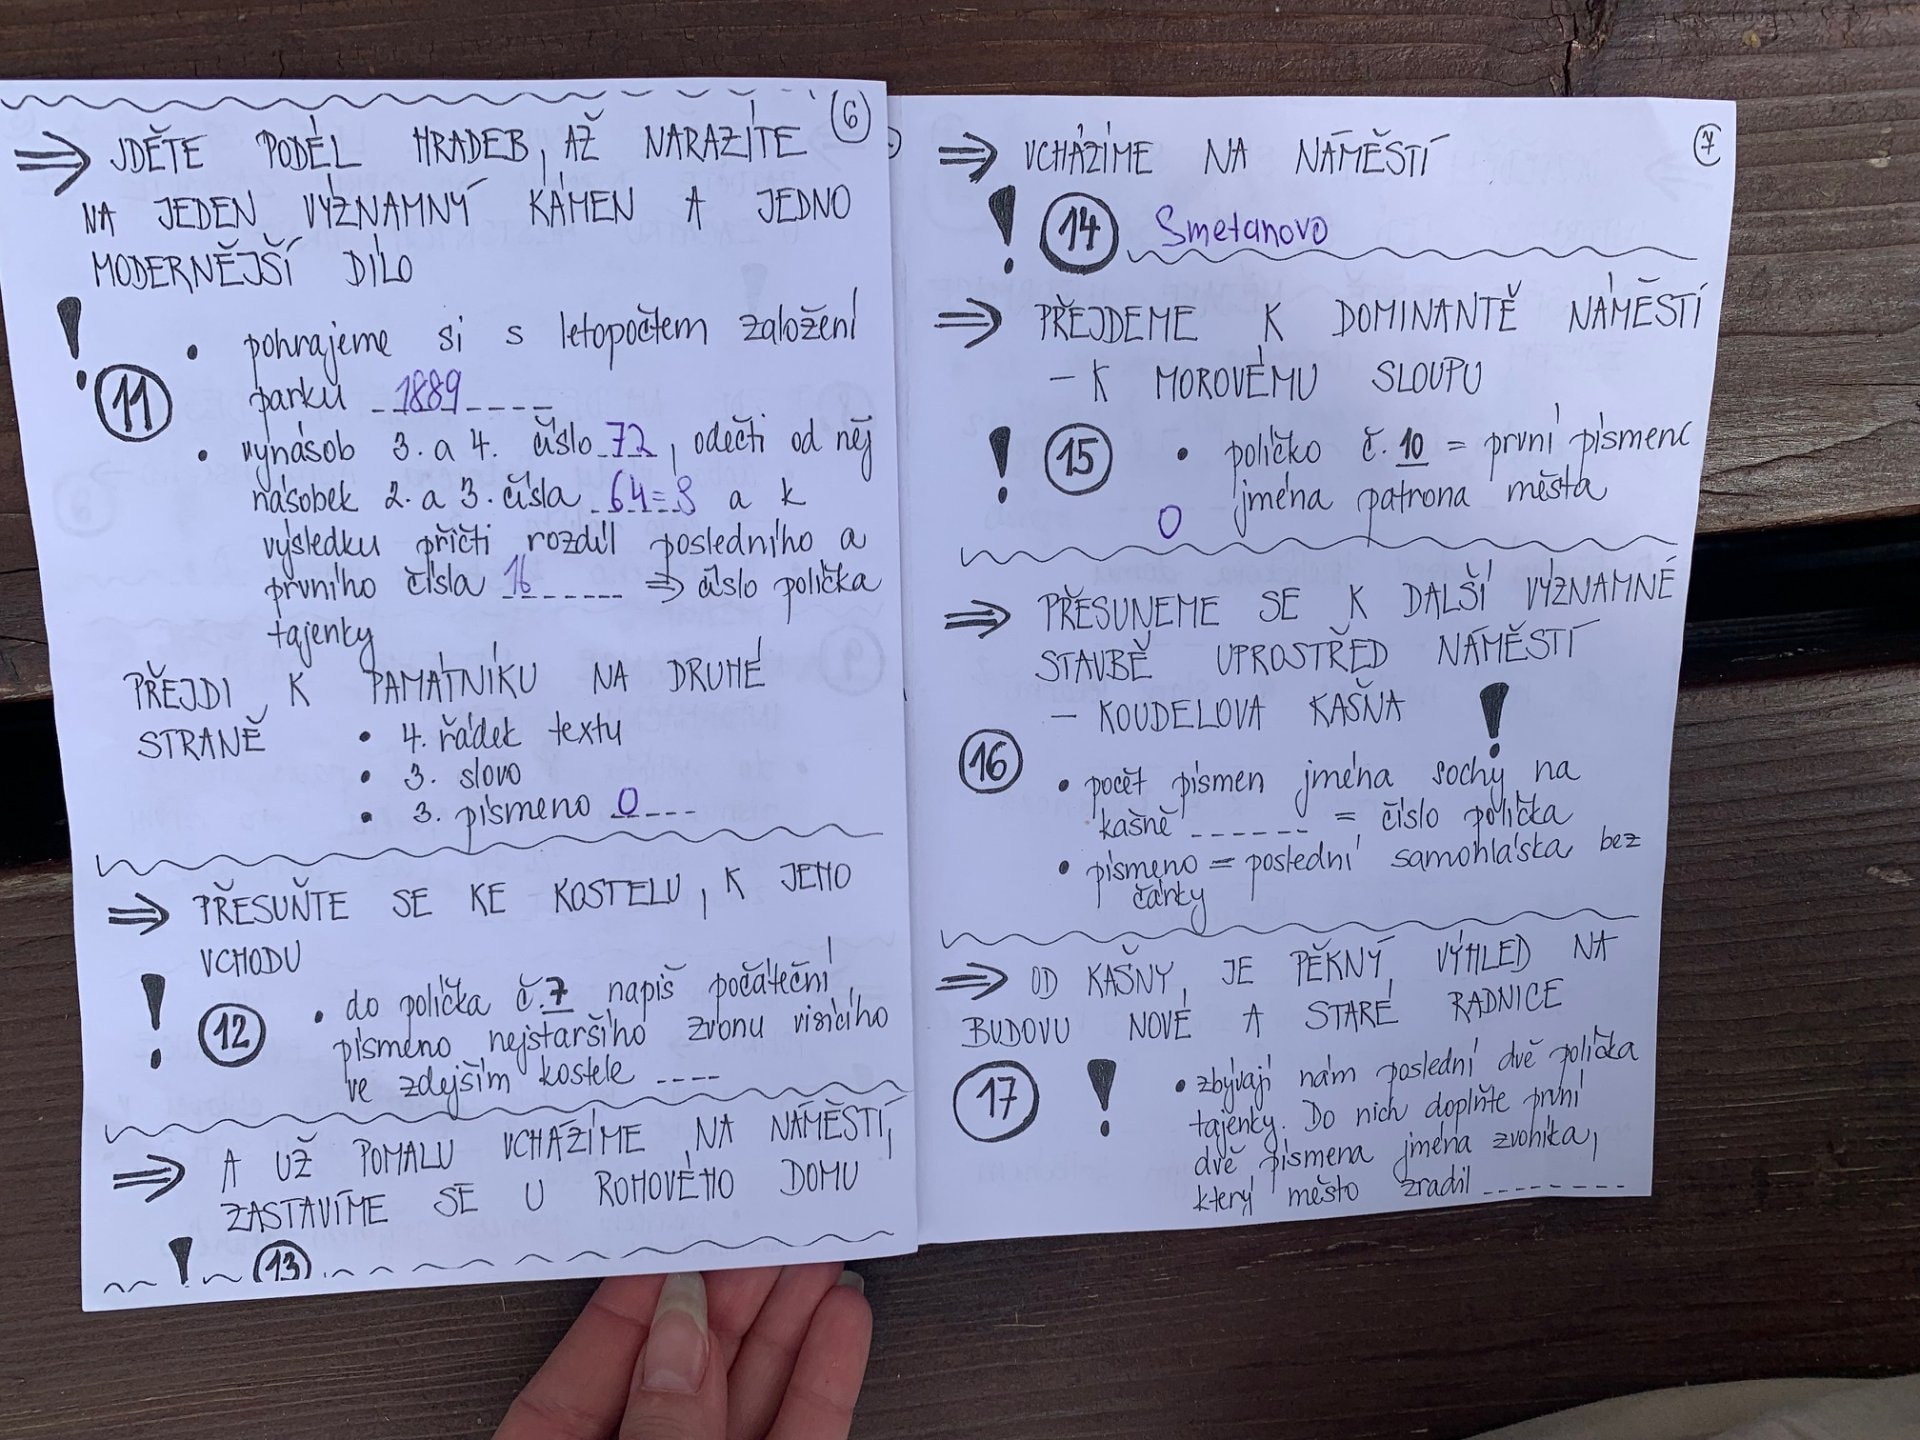 6
⇒ JDĚTE PODÉL HRADEB, AŽ NARAZÍTE
NA JEDEN VÝZNAMNÝ KÁMEN A JEDNO
MODERNĚJŠÍ DÍLO
! 11
• pohrajeme si s letopočtem založení
parku 1889
• vynásob 3. a 4. číslo 72, odečti od něj
násobek 2. a 3. čísla 64=8 a k
výsledku přičti rozdíl posledního a
prvního čísla 16 ⇒ číslo políčka
tajenky
PŘEJDI K PAMÁTNÍKU NA DRUHÉ
STRANĚ • 4. řádek textu
• 3. slovo
• 3. písmeno O
⇒ PŘESUŇTE SE KE KOSTELU, K JEHO
VCHODU
! 12 • do políčka č. 7 napiš počáteční
písmeno nejstaršího zvonu visícího
ve zdejším kostele ----
⇒ A UŽ POMALU VCHÁZÍME NA NÁMĚSTÍ,
ZASTAVÍME SE U ROHOVÉHO DOMU
! 13
7
⇒ VCHÁZÍME NA NÁMĚSTÍ
! 14 Smetanovo
⇒ PŘEJDEME K DOMINANTĚ NÁMĚSTÍ
– K MOROVÉMU SLOUPU
! 15 • políčko č. 10 = první písmeno
jména patrona města
O
⇒ PŘESUNEME SE K DALŠÍ VÝZNAMNÉ
STAVBĚ UPROSTŘED NÁMĚSTÍ
– KOUDELOVA KAŠNA !
16 • počet písmen jména sochy na
kašně ------ = číslo políčka
• písmeno = poslední samohláska bez
čárky
⇒ OD KAŠNY JE PĚKNÝ VÝHLED NA
BUDOVU NOVÉ A STARÉ RADNICE
17 ! • zbývají nám poslední dvě políčka
tajenky. Do nich doplňte první
dvě písmena jména zvoníka,
který město zradil --------